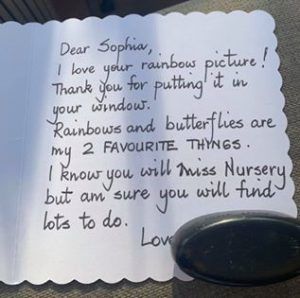 Dear Sophia,
I love your rainbow picture!
Thank you for putting it in
your window.
Rainbows and butterflies are
my 2 FAVOURITE THINGS.
I know you will miss Nursery
but am sure you will find
lots to do.
Love